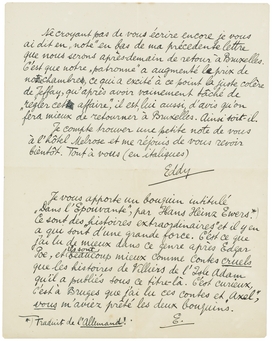 Ne croyant pas de vous écrire encore je vous
ai dit en "note" en bas de ma précédente lettre
que nous serons après demain de retour à Bruxelles.
C'est que notre "patronne" a augmenté le prix de
nos chambres, ce qui a excité à ce point la juste colère
de Jeffay, qu'après avoir vainement tâché de
régler cette "affaire", il est lui aussi, d'avis qu'on
fera mieux de retourner à Bruxelles. Ainsi soit-il.
Je compte trouver une petite note de vous
à l'Hôtel Melrose et me réjouis de vous revoir
bientôt. Tout à vous (en italiques)
Eddy
Je vous apporte un bouquin intitulé
"Dans l'Epouvante", par Hans Heinz Ewers*)
Ce sont des "histoires extraordinaires" et il y en
a qui sont d'une grande force. C'est ce que
j'ai lu de mieux dans ce genre après Edgar
Poe, et beaucoup mieux comme contes cruels
que les histoires de Villiers de l'Isle Adam
qu'il a publiés sous ce titre-là. C'est curieux,
c'est à Bruges que j'ai lu ces contes et "Axel",
vous m'aviez prêté les deux bouquins.
*) Traduit de l'Allemand!
E.